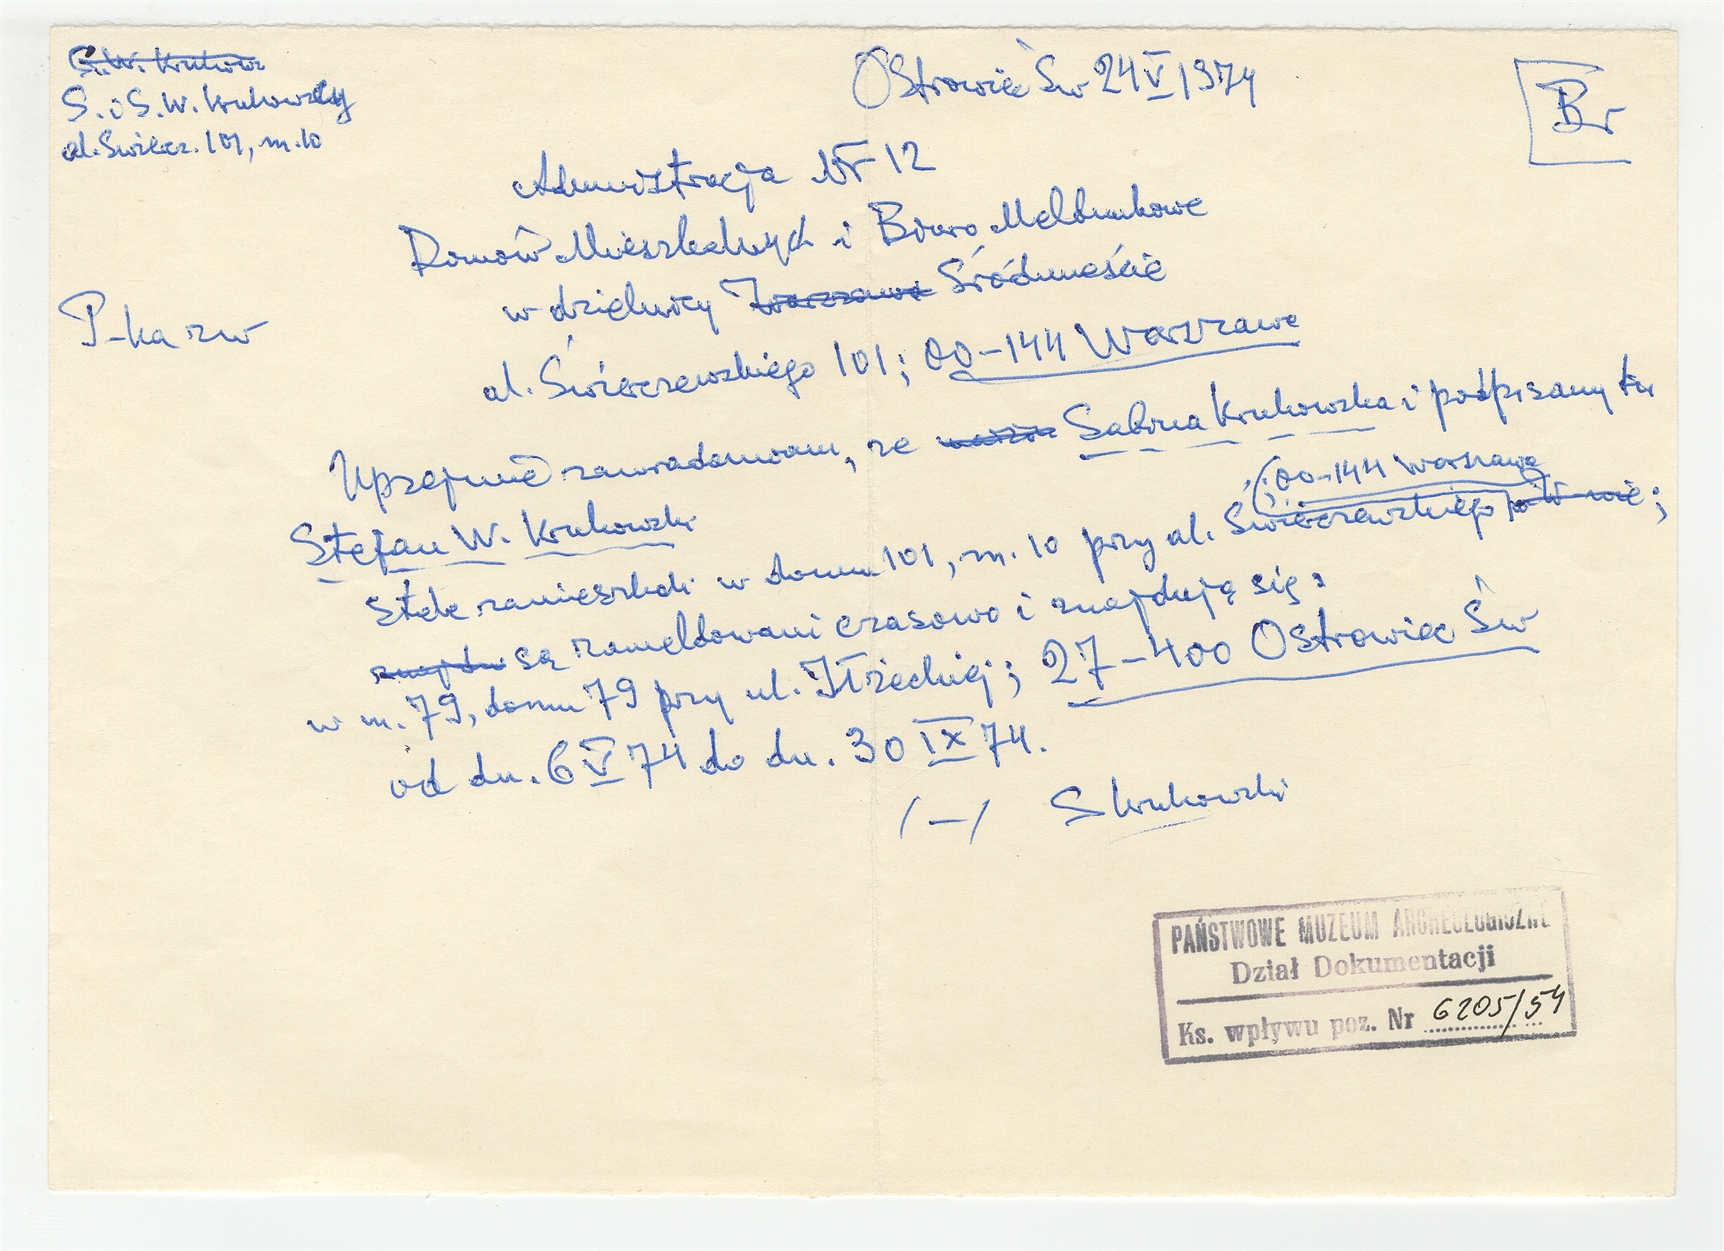 S. W. Krukows
S. i S. W. Krukowscy
al. Świercz. 101, m. 10
Ostrowiec Św 24 V 1974
Br
Administracja Nr 12
Domów Mieszkalnych i Biuro Meldunkowe
w dzielnicy Warszawa Śródmieście
P-ka zw
al. Świerczewskiego 101; 00-144 Warszawa
Uprzejmie zawiadamiam, że Sabina Krukowska i podpisany tu
Stefan W. Krukowski
; 00-144 Warszawa
stale zamieszkali w domu 101, m. 10 przy al. Świerczewskiego w W-wie;
znajdu są zameldowani czasowo i znajdują się:
w m. 79, domu 79 przy ul. Iłżeckiej; 27-400 Ostrowiec Św
od dn. 6 V 74 do dn. 30 IX 74.
/-/ S Krukowski
PAŃSTWOWE MUZEUM ARCHEOLOGICZNE
Dział Dokumentacji
Ks. wpływu poz. Nr 6205/54